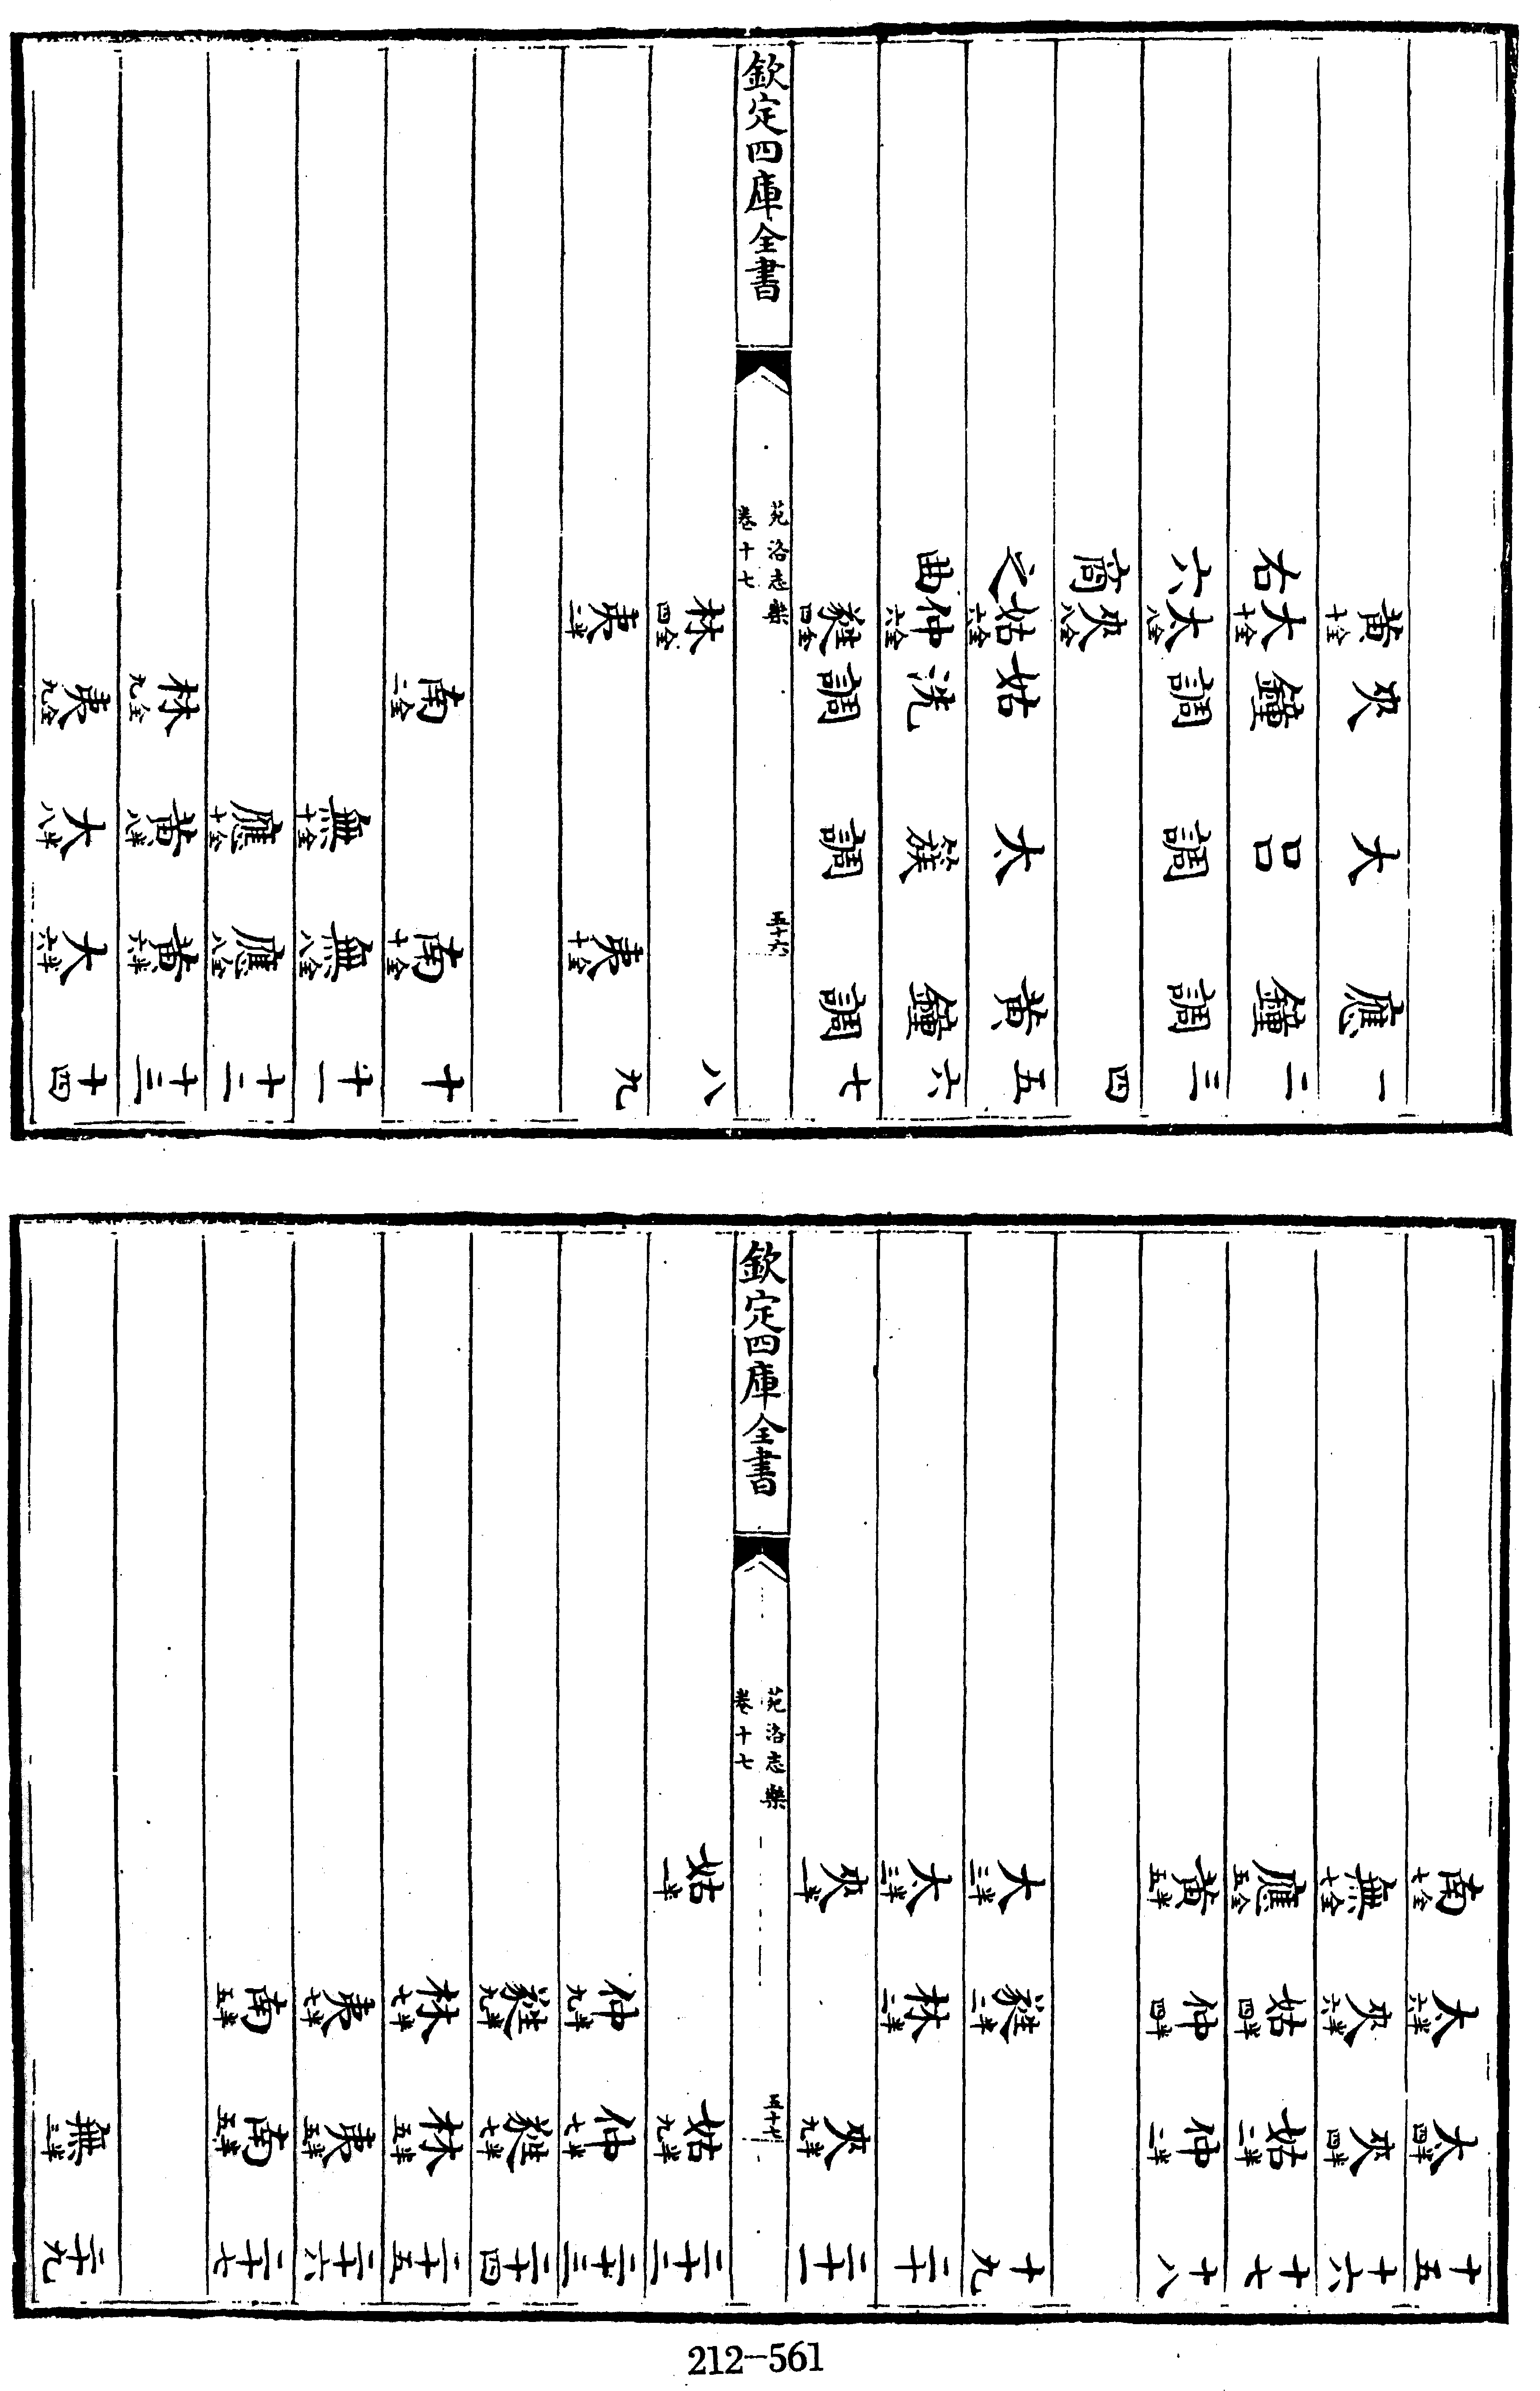 黃十全 夾 大 應 一
右 大十全 鐘 呂 鐘 二
六 太八全 調 調 調 三
商 夾八全 四
之 姑六全 姑 太 黃 五
曲 仲六全 洗 簇 鐘 六
蕤四全 調 調 調 七
欽定四庫全書
苑洛志樂
卷十七
五十六
林四全 八
夷二半 夷十全 九
南二全 南十全 十
無十全 無八全 十一
應十全 應八全 十二
林九全 黃八半 黃六半 十三
夷九全 大八半 大六半 十四
南七全 太六半 太四半 十五
無七全 夾六半 夾四半 十六
應五全 姑四半 姑二半 十七
黃五半 仲四半 仲二半 十八
大三半 蕤二半 十九
太三半 林二半 二十
夾一半 夾九半 二十一
欽定四庫全書
苑洛志樂
卷十七
五十七
姑一半 姑九半 二十二
仲九半 仲七半 二十三
蕤九半 蕤七半 二十四
林七半 林五半 二十五
夷七半 夷五半 二十六
南五半 南五半 二十七
無三半 二十九
212-561